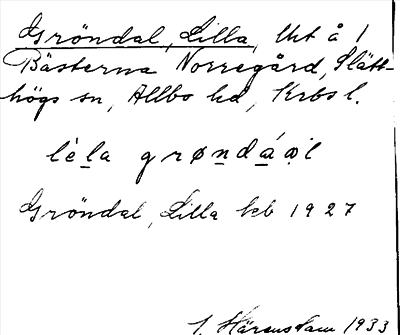 Gröndal, Lilla, lht å 1
Bästerna Norregård, Slätt-
högs sn, Allbo hd, Krbs l.
lè l̲a grøn̲dáạ̊l
Gröndal, Lilla heb 1927
I. Härenstam 1933